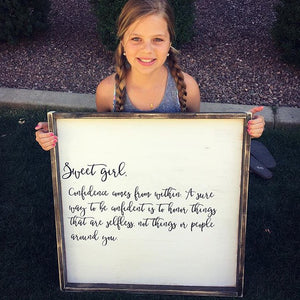 Sweet girl,
Confidence comes from within. A sure
way to be confident is to honor things
that are selfless, not things or people
around you.